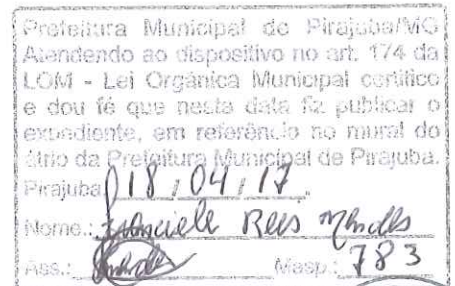 Prefeitura Municipal de Pirajuba/MG
Atendendo ao dispositivo no art. 174 da
LOM - Lei Orgânica Municipal certifico
e dou fé que nesta data fiz publicar o
expediente, em referência no mural do
átrio da Prefeitura Municipal de Pirajuba.
Pirajuba 18 / 04 / 17.
Nome.: Franciele Reis Mendes
Ass.: Mendes Masp.: 783